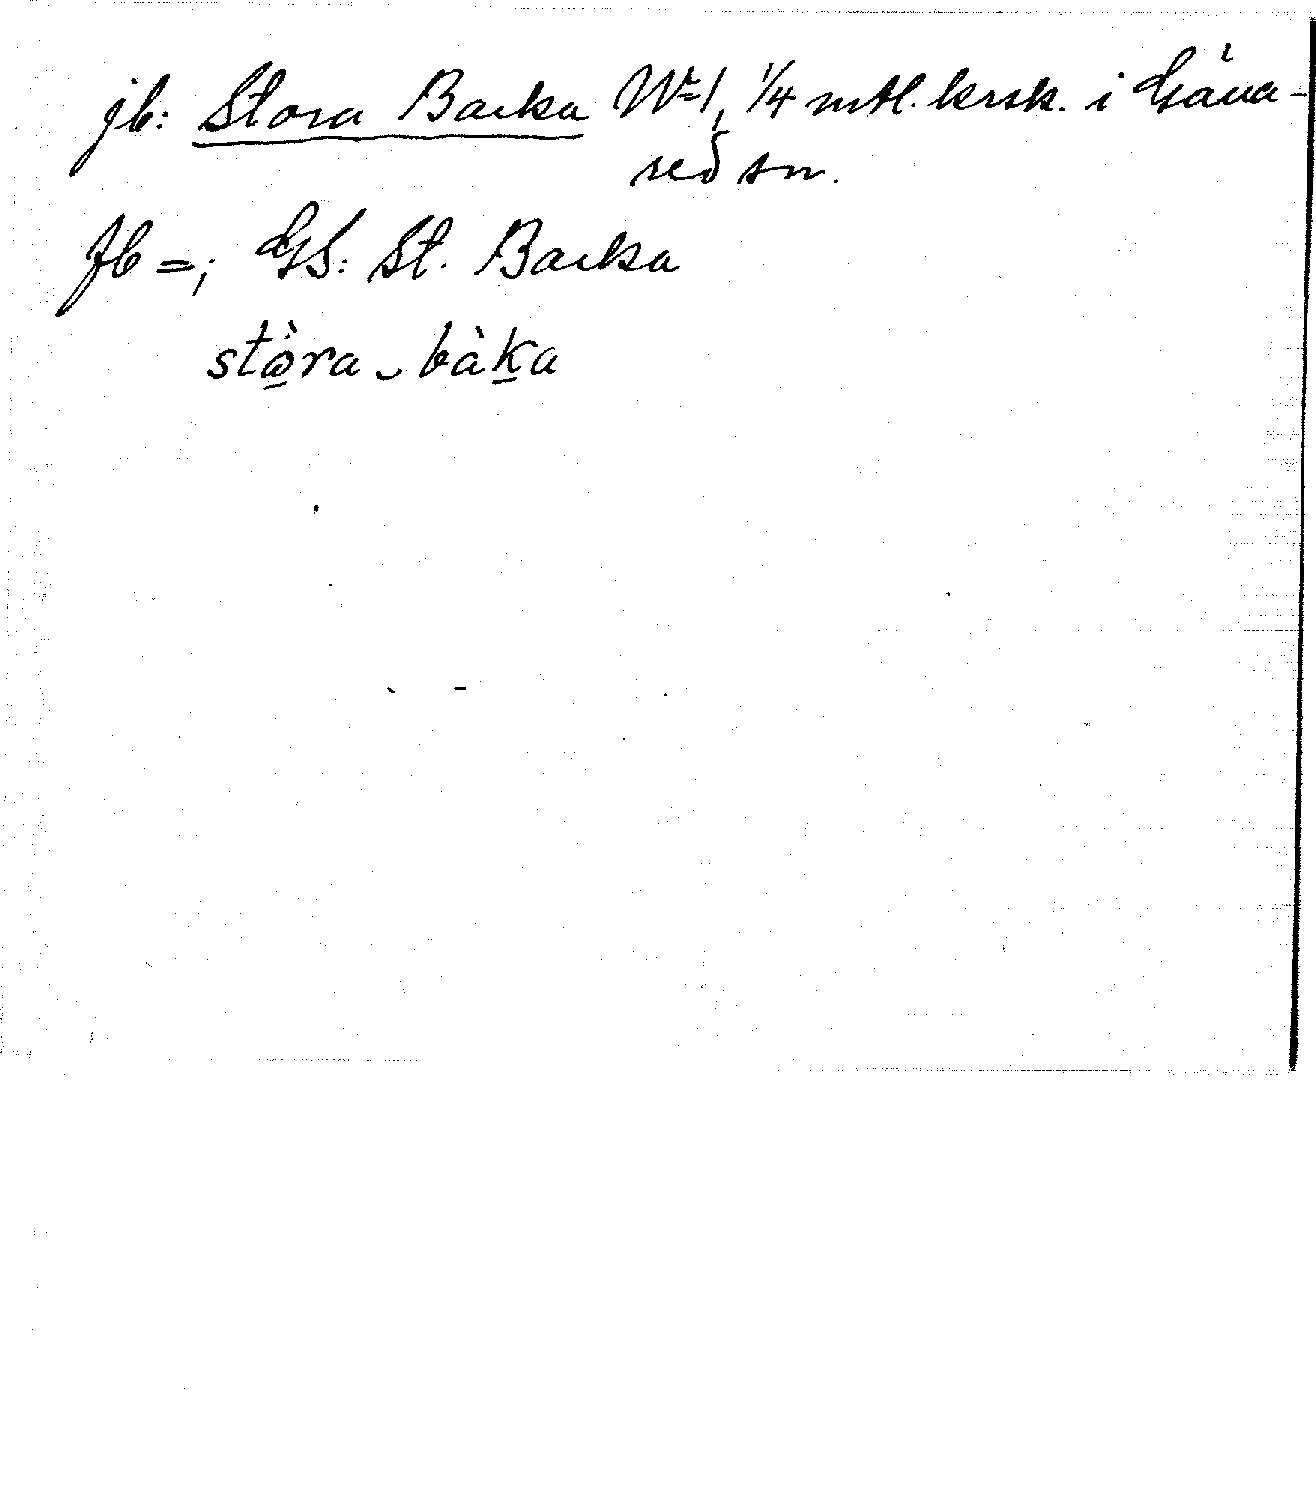 jb: Stora Backa No 1, 1/4 mtl. krsk. i Gäna-
sed sn.
Jb =; GS: St. Backa
stòra ‿ bàka